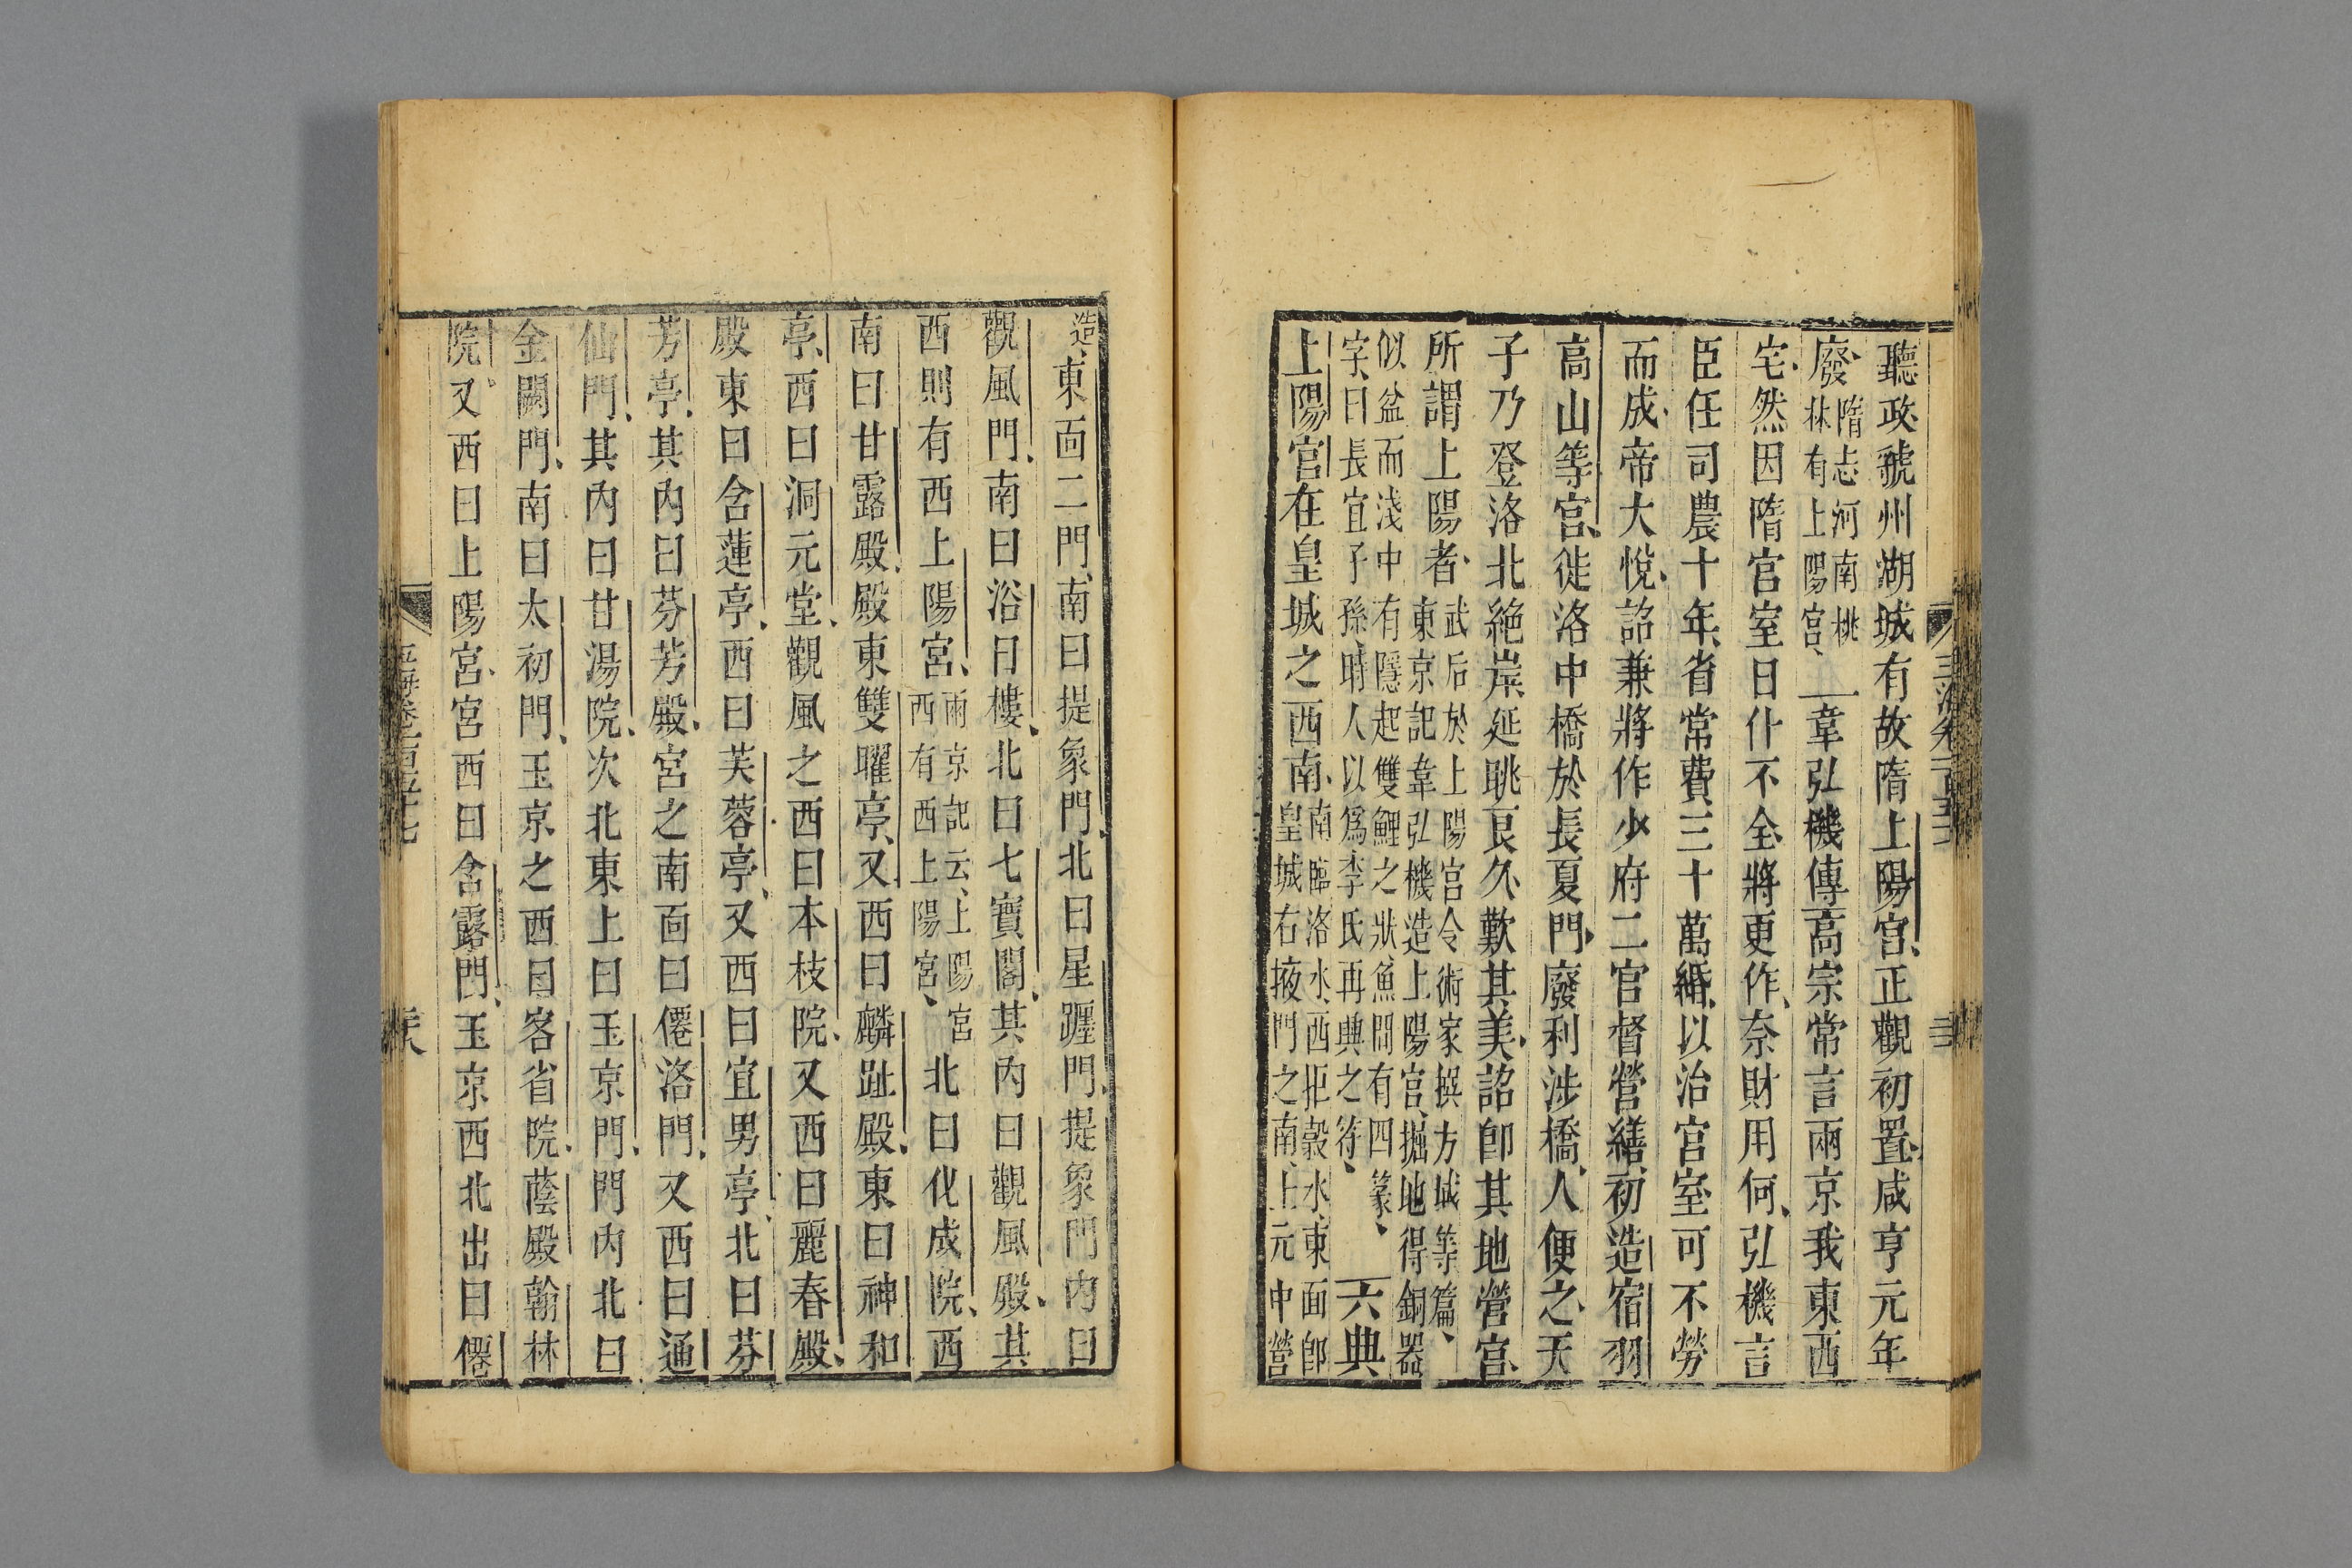 聽政虢州湖城有故隋上陽宮正觀初置咸亨元年
廢隋志河南桃林有上陽宮韋弘機傳高宗常言兩京我東西
宅然因隋宮室日什不全將更作奈財用何弘機言
臣任司農十年省常費三十萬緡以治宮室可不勞
而成帝大悅詔兼將作少府二官督營繕初造宿羽
高山等宮徙洛中橋於長夏門廢利涉橋人便之天
子乃登洛北絶岸延眺良久歎其美詔卽其地營宮
所謂上陽者武后於上陽宮令術家撰方域等篇東京記韋弘機造上陽宮掘地得銅器
似盆而淺中有隱起雙鯉之狀魚間有四篆字曰長宜子孫時人以爲李氏再興之符六典
上陽宮在皇城之西南南臨洛水西拒穀水東面卽皇城右掖門之南上元中營
造東面二門南曰提象門北曰星躔門提象門内曰
觀風門南曰浴日樓北曰七寶閣其内曰觀風殿其
西則有西上陽宮兩京記云上陽宮西有西上陽宮北曰化成院西
南曰甘露殿殿東雙曜亭又西曰麟趾殿東曰神和
亭西曰洞元堂觀風之西曰本枝院又西曰麗春殿
殿東曰含蓮亭西曰芙蓉亭又西曰宜男亭北曰芬
芳亭其内曰芬芳殿宮之南面曰僊洛門又西曰通
仙門其内曰甘湯院次北東上曰玉京門門内北曰
金闕門南曰太初門玉京之西曰客省院蔭殿翰林
院又西曰上陽宮宮西曰含露門玉京西北出曰僊